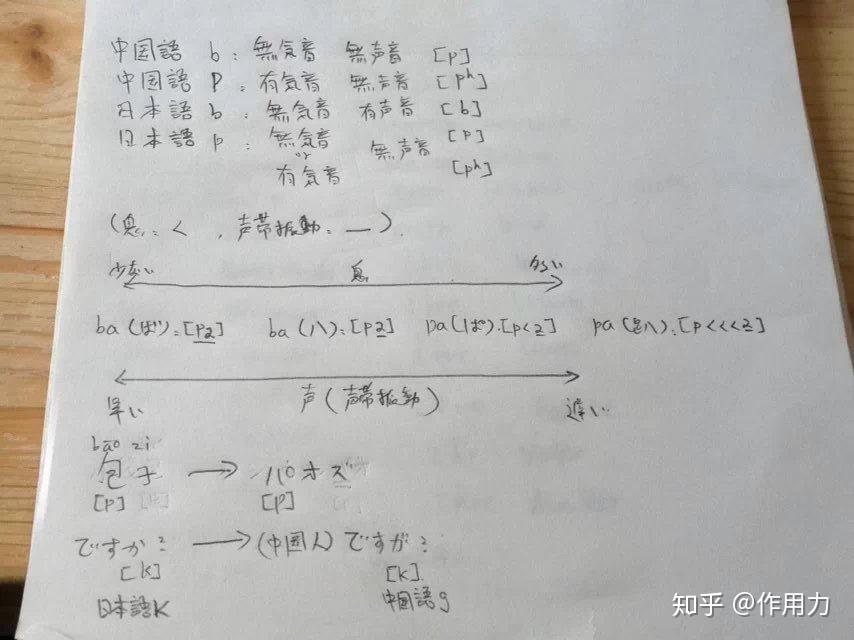 中国語 b：無気音 無声音 [p]
中国語 p：有気音 無声音 [pʰ]
日本語 b：無気音 有声音 [b]
日本語 p：無気音 無声音 [p]
or
有気音 [pʰ]
(息：<，声帯振動：—).
少ない 息 多い
ba(ば):[pa] ba(八):[pa] pa(ぱ):[p<a] pa(趴):[p<<<a]
早い 声(声帯振動) 遅い
bāo zi
包子 → パオズ
[p] [p]
ですか？ → (中国人)ですが？
[k] [k].
日本語k 中国語g
知乎 @作用力